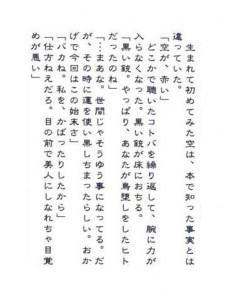 生まれて初めてみた空は、本で知った事実とは
違っていた。
「空が、赤い」
　どこかで聴いたコトバを繰り返して、腕に力が
入らなくなった。黒い銃が床におちる。
「黒い銃。やっぱり、あなたが鳥墜しをしたヒト
だったのね」
「……まあな。世間じゃそうゆう事になってる。だ
が、その時に運を使い果しちまったらしい。おか
げで今回はこの始末さ」
「バカね。私を、かばったりしたから」
「仕方ねえだろ。目の前で美人にしなれちゃ目覚
めが悪い」